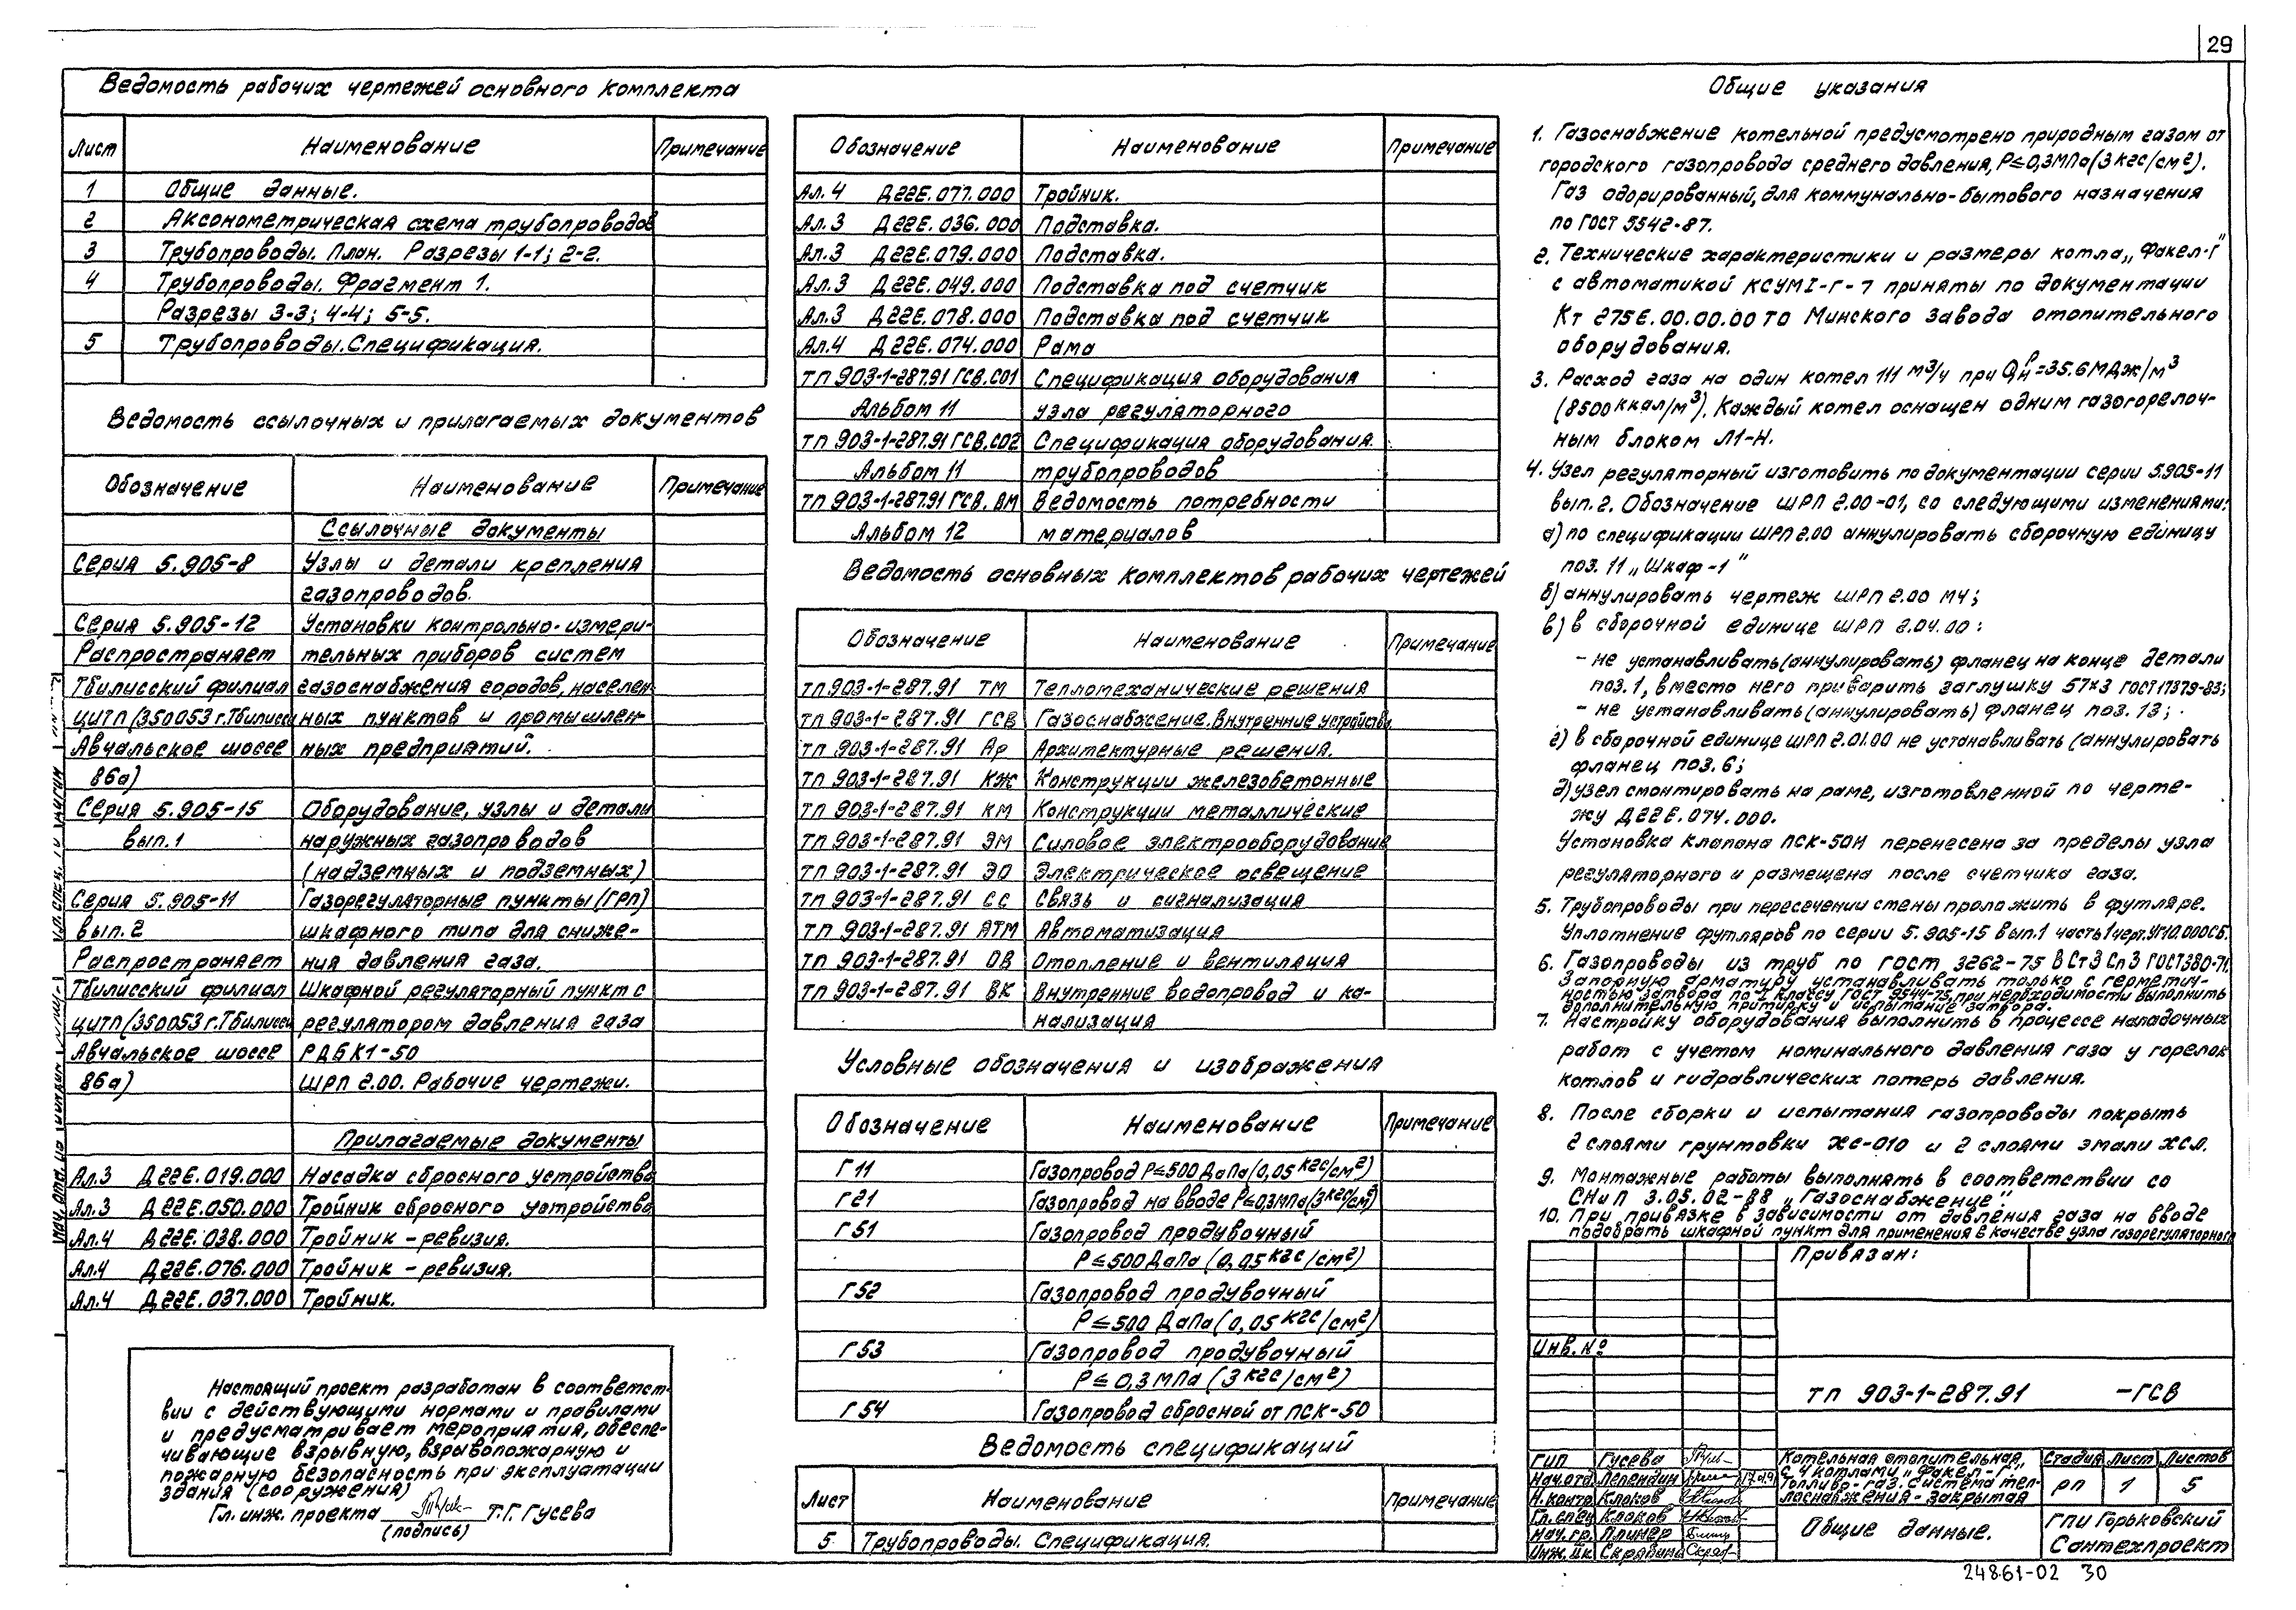 29
Ведомость рабочих чертежей основного комплекта
Лист Наименование Примечание
1 Общие данные.
2 Аксонометрическая схема трубопроводов
3 Трубопроводы. План. Разрезы 1-1; 2-2.
4 Трубопроводы. Фрагмент 1.
Разрезы 3-3; 4-4; 5-5.
5 Трубопроводы. Спецификация.
Ведомость ссылочных и прилагаемых документов
Обозначение Наименование Примечание
Ссылочные документы
Серия 5.905-8 Узлы и детали крепления
газопроводов.
Серия 5.905-12 Установки контрольно-измери-
Распространяет тельных приборов систем
Тбилисский филиал газоснабжения городов, населен-
ЦИТП (350053 г. Тбилиси ных пунктов и промышлен-
Авчальское шоссе ных предприятий.
86а)
Серия 5.905-15 Оборудование, узлы и детали
вып.1 наружных газопроводов
(надземных и подземных)
Серия 5.905-11 Газорегуляторные пункты (ГРП)
вып.2 шкафного типа для сниже-
Распространяет ния давления газа.
Тбилисский филиал Шкафной регуляторный пункт с
ЦИТП (350053 г. Тбилиси регулятором давления газа
Авчальское шоссе РДБК1-50
86а) ШРП 2.00. Рабочие чертежи.
Прилагаемые документы
Ал.3 Д22Е.019.000 Насадка сбросного устройства
Ал.3 Д22Е.050.000 Тройник сбросного устройства
Ал.4 Д22Е.038.000 Тройник - ревизия.
Ал.4 Д22Е.076.000 Тройник - ревизия.
Ал.4 Д22Е.037.000 Тройник.
Настоящий проект разработан в соответст-
вии с действующими нормами и правилами
и предусматривает мероприятия, обеспе-
чивающие взрывную, взрывопожарную и
пожарную безопасность при эксплуатации
здания (сооружения)
Гл. инж. проекта Т.Г. Гусева
(подпись)
Обозначение Наименование Примечание
Ал.4 Д22Е.077.000 Тройник.
Ал.3 Д22Е.036.000 Подставка.
Ал.3 Д22Е.079.000 Подставка.
Ал.3 Д22Е.049.000 Подставка под счетчик
Ал.3 Д22Е.078.000 Подставка под счетчик
Ал.4 Д22Е.074.000 Рама
ТП 903-1-287.91 ГСВ.С01 Спецификация оборудования
Альбом 11 узла регуляторного
ТП 903-1-287.91 ГСВ.С02 Спецификация оборудования.
Альбом 11 трубопроводов
ТП 903-1-287.91 ГСВ.ВМ Ведомость потребности
Альбом 12 материалов
Ведомость основных комплектов рабочих чертежей
Обозначение Наименование Примечание
ТП 903-1-287.91 ТМ Тепломеханические решения
ТП 903-1-287.91 ГСВ Газоснабжение. Внутренние устройства
ТП 903-1-287.91 Ар Архитектурные решения.
ТП 903-1-287.91 КЖ Конструкции железобетонные
ТП 903-1-287.91 КМ Конструкции металлические
ТП 903-1-287.91 ЭМ Силовое электрооборудование
ТП 903-1-287.91 ЭО Электрическое освещение
ТП 903-1-287.91 СС Связь и сигнализация
ТП 903-1-287.91 АТМ Автоматизация
ТП 903-1-287.91 ОВ Отопление и вентиляция
ТП 903-1-287.91 ВК Внутренние водопровод и ка-
нализация
Условные обозначения и изображения
Обозначение Наименование Примечание
Г11 Газопровод Р≤500 ДаПа (0,05 кгс/см²)
Г21 Газопровод на вводе Р≤0,3МПа (3 кгс/см²)
Г51 Газопровод продувочный
Р≤500 ДаПа (0,05 кгс/см²)
Г52 Газопровод продувочный
Р≤500 ДаПа (0,05 кгс/см²)
Г53 Газопровод продувочный
Р≤0,3 МПа (3 кгс/см²)
Г54 Газопровод сбросной от ПСК-50
Ведомость спецификаций
Лист Наименование Примечание
5 Трубопроводы. Спецификация.
Общие указания
1. Газоснабжение котельной предусмотрено природным газом от
городского газопровода среднего давления, Р≤0,3МПа (3 кгс/см²).
Газ одорированный, для коммунально-бытового назначения
по ГОСТ 5542-87.
2. Технические характеристики и размеры котла „Факел-Г"
с автоматикой КСУМ1-Г-7 приняты по документации
Кт 275Е.00.00.00 ТО Минского завода отопительного
оборудования.
3. Расход газа на один котел 111 м³/ч при Qнр=35.6 МДж/м³
(8500 ккал/м³). Каждый котел оснащен одним газогорелоч-
ным блоком Л1-Н.
4. Узел регуляторный изготовить по документации серии 5.905-11
вып. 2. Обозначение ШРП 2.00-01, со следующими изменениями:
а) по спецификации ШРП 2.00 аннулировать сборочную единицу
поз. 11 „Шкаф-1"
б) аннулировать чертеж ШРП 2.00 МЧ;
в) в сборочной единице ШРП 2.04.00:
- не устанавливать (аннулировать) фланец на конце детали
поз. 1, вместо него приварить заглушку 57×3 ГОСТ 17379-83;
- не устанавливать (аннулировать) фланец поз. 13;
г) в сборочной единице ШРП 2.01.00 не устанавливать (аннулировать
фланец поз. 6;
д) узел смонтировать на раме, изготовленной по черте-
жу Д22Е.074.000.
Установка клапана ПСК-50Н перенесена за пределы узла
регуляторного и размещена после счетчика газа.
5. Трубопроводы при пересечении стены проложить в футляре.
Уплотнение футляров по серии 5.905-15 вып.1 часть 1 черт. УГ10.000СБ.
6. Газопроводы из труб по ГОСТ 3262-75 ВСт3Сп3 ГОСТ380-71.
Запорную арматуру устанавливать только с герметич-
ностью затвора по 1 классу ГОСТ 9544-75, при необходимости выполнить
дополнительную притирку и испытание затвора.
7. Настройку оборудования выполнить в процессе наладочных
работ с учетом номинального давления газа у горелок
котлов и гидравлических потерь давления.
8. После сборки и испытания газопроводы покрыть
2 слоями грунтовки ХС-010 и 2 слоями эмали ХСЛ.
9. Монтажные работы выполнять в соответствии со
СНиП 3.05.02-88 „Газоснабжение".
10. При привязке в зависимости от давления газа на вводе
подобрать шкафной пункт для применения в качестве узла газорегуляторного
Привязан:
Инв. №
ТП 903-1-287.91 -ГСВ
ГИП Гусева
Нач. отд. Лепендин
Н. контр. Клоков
Гл. спец. Клоков
Нач. гр. Плинер
Инж. IIк. Скрябина
Котельная отопительная
с 4 котлами „Факел-Г".
Топливо-газ. Система теп-
лоснабжения - закрытая
Стадия Лист Листов
РП 1 5
Общие данные.
ГПИ Горьковский
Сантехпроект
24861-02 30